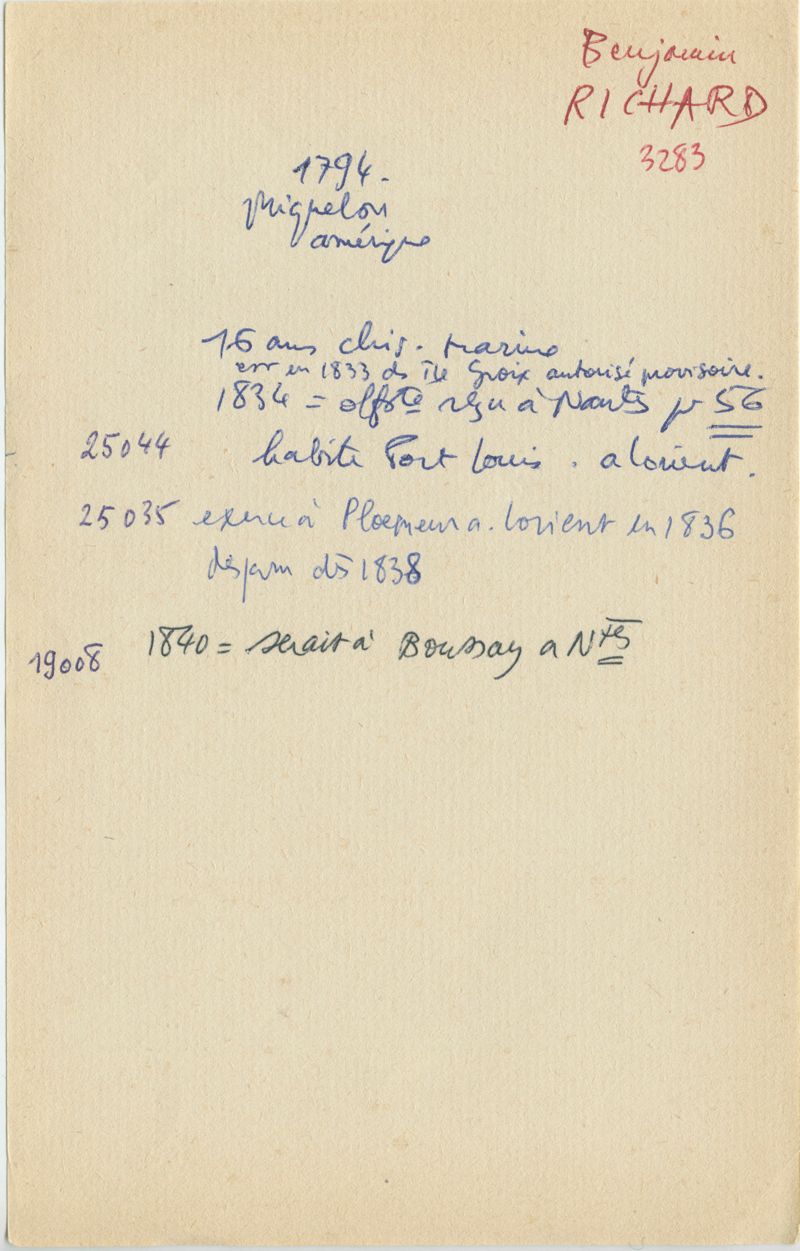 Benjamin
RICHARD
3283
1794.
Miquelon
amérique
16 ans chir. marine
en 1833 ds Ile Groix autorisé provisoire.
1834 = offté reçu à Nantes pr 56
25044 habite Port Louis. a lorient.
25035 exerce à Ploemeur a. lorient en 1836
disparu dès 1838
19008 1840 = serait à Boussay a Ntes